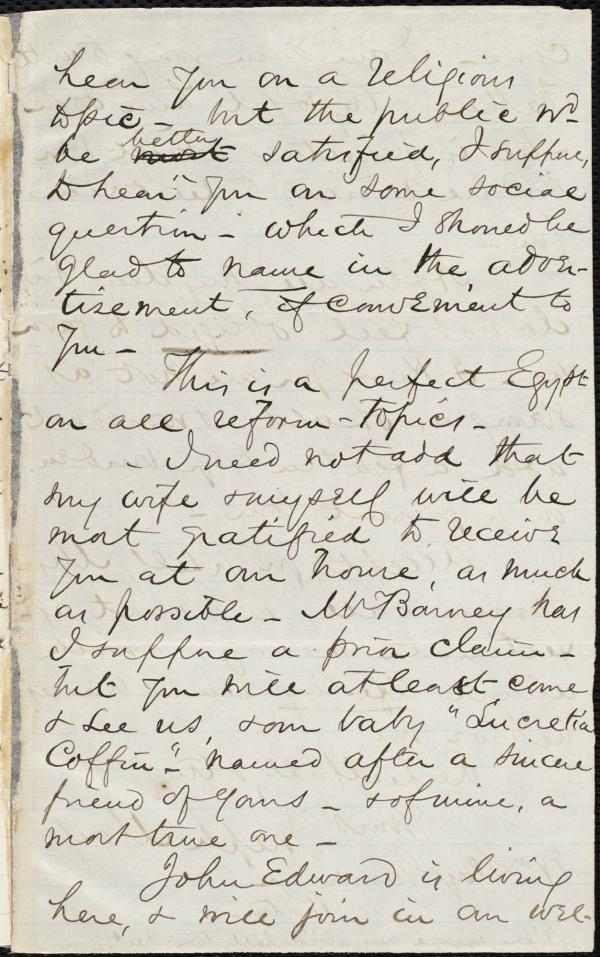 hear you on a religious
topic – but the public wd
be better most satisfied, I suppose,
to hear you on some social
question – which I should be
glad to name in the adver-
tisement, if convenient to
you –
This is a perfect Egypt
on all reform-topics –
– I need not add that
my wife & myself will be
most gratified to receive
you at our house, as much
as possible – Mr Barney has
I suppose a prior claim –
but you will at least come
& see us, & our baby "Lucretia
Coffin" – named after a sincere
friend of yours – & of mine, a
most true one –
John Edward is living
here, & will join in our wel-